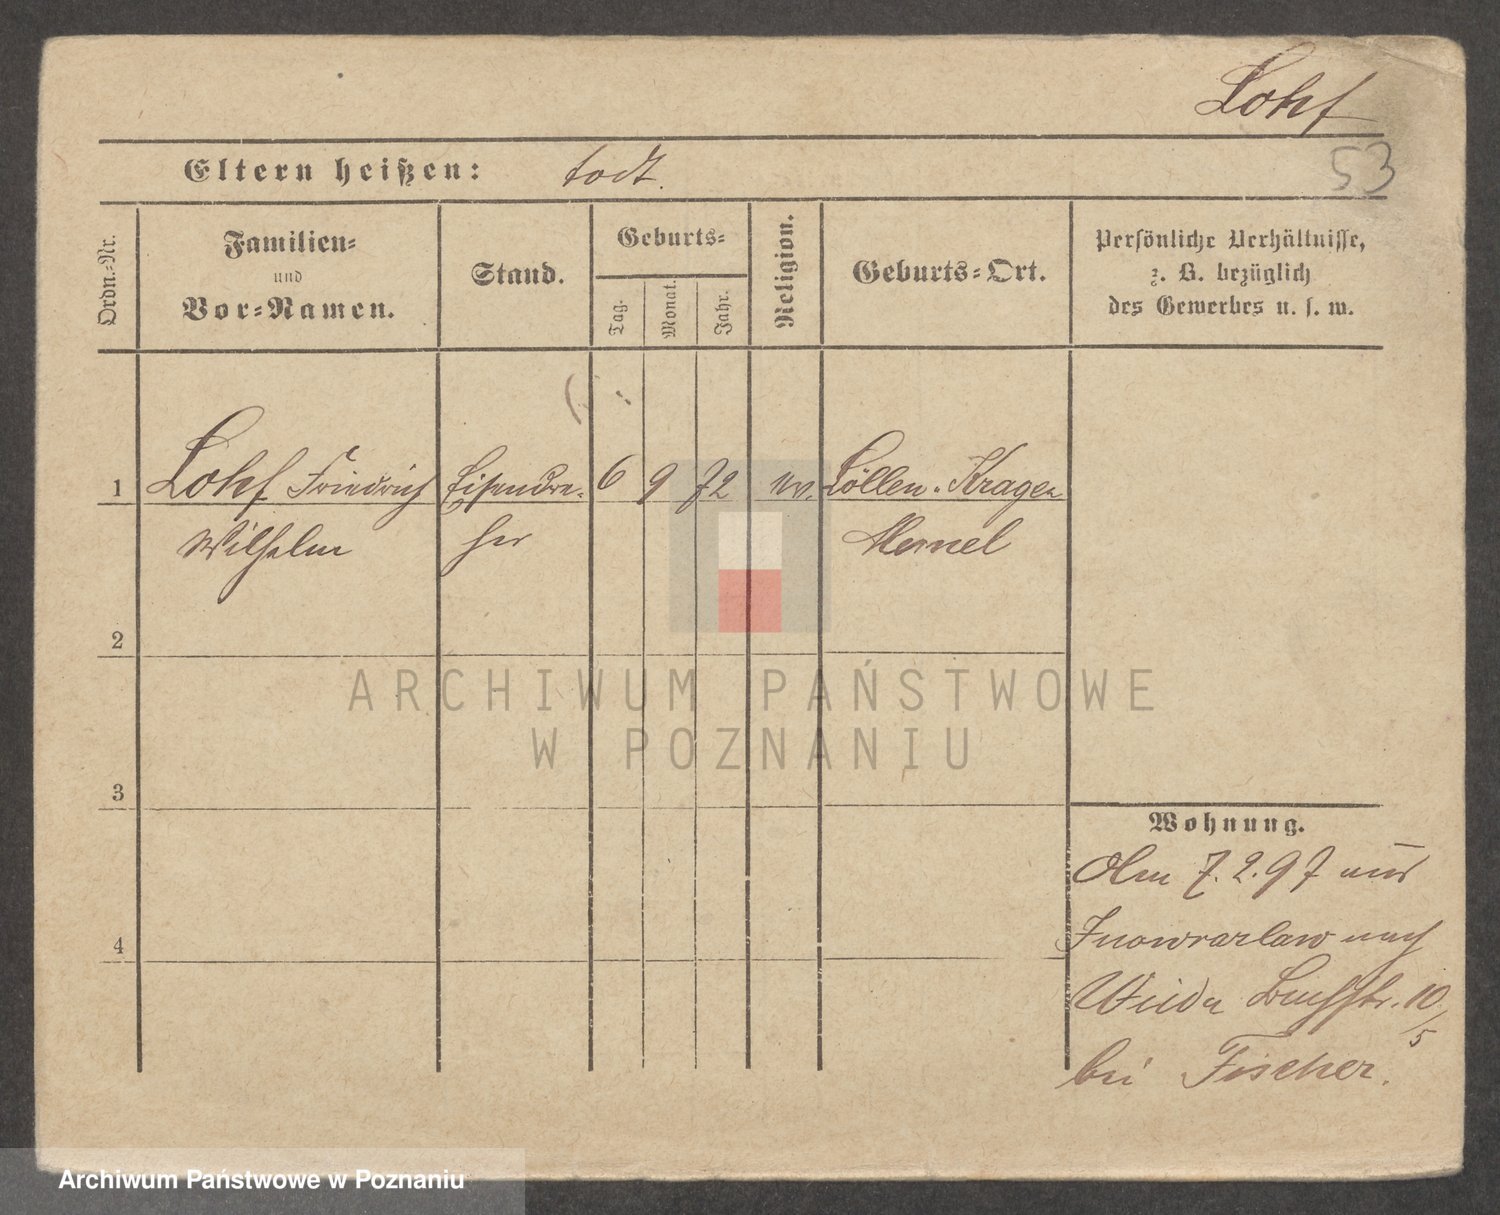 Lohf
53
Eltern heißen: todt.
Ordn.-Nr.
Familien-
und
Vor-Namen.
Stand.
Geburts-
Tag.
Monat.
Jahr.
Religion.
Geburts-Ort.
Persönliche Verhältnisse,
z. B. bezüglich
des Gewerbes u. s. w.
1 Lohf Friedrich Eisendre- 6 9 72 ev. Löllen-Kragen
Wilhelm her Memel
2
3
4
ARCHIWUM PAŃSTWOWE
W POZNANIU
Wohnung.
Am 7.2.97 aus
Inowrazlaw nach
Wilda 10/5
bei Fischer.
Archiwum Państwowe w Poznaniu